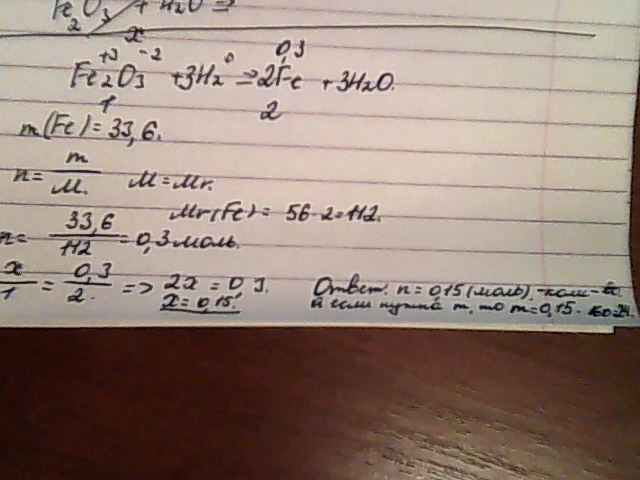 Fe2O3 + H2O ⇒
x 0,3
+3 -2 0
Fe2O3 + 3H2 ⇒ 2Fe + 3H2O.
1 2
m(Fe) = 33,6.
n = m/M. M = Mr.
Mr(Fe) = 56·2=112.
n = 33,6/112 = 0,3 моль.
x/1 = 0,3/2. => 2x = 0,3. Ответ: n = 0,15 (моль), -кол-
x = 0,15. а если нужна m, то m = 0,15 ·